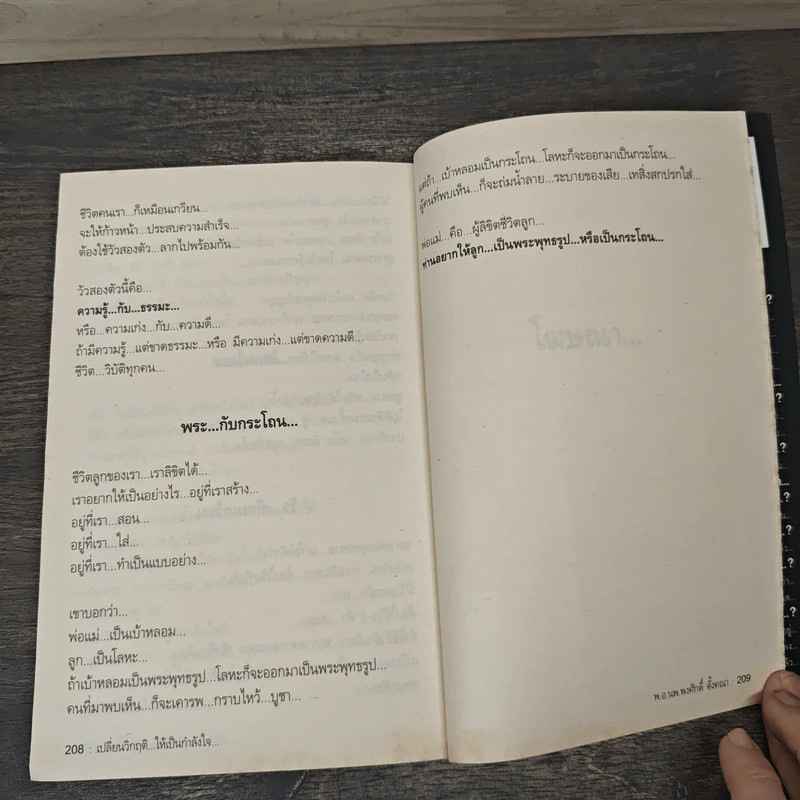 ชีวิตคนเรา...ก็เหมือนเกวียน...
จะให้ก้าวหน้า...ประสบความสำเร็จ...
ต้องใช้วัวสองตัว...ลากไปพร้อมกัน...
วัวสองตัวนี้คือ...
ความรู้...กับ...ธรรมะ...
หรือ...ความเก่ง...กับ...ความดี...
ถ้ามีความรู้...แต่ขาดธรรมะ...หรือ มีความเก่ง...แต่ขาดความดี...
ชีวิต...วิบัติทุกคน...
พระ...กับกระโถน...
ชีวิตลูกของเรา...เราลิขิตได้...
เราอยากให้เป็นอย่างไร...อยู่ที่เราสร้าง...
อยู่ที่เรา...สอน...
อยู่ที่เรา...ใส่...
อยู่ที่เรา...ทำเป็นแบบอย่าง...
เขาบอกว่า...
พ่อแม่...เป็นเบ้าหลอม...
ลูก...เป็นโลหะ...
ถ้าเบ้าหลอมเป็นพระพุทธรูป...โลหะก็จะออกมาเป็นพระพุทธรูป...
คนที่มาพบเห็น...ก็จะเคารพ...กราบไหว้...บูชา...
208 : เปลี่ยนวิกฤติ...ให้เป็นกำลังใจ...
แต่ถ้า...เบ้าหลอมเป็นกระโถน...โลหะก็จะออกมาเป็นกระโถน...
ผู้คนที่พบเห็น...ก็จะถ่มน้ำลาย...ระบายของเสีย...เทสิ่งสกปรกใส่...
พ่อแม่...คือ...ผู้ลิขิตชีวิตลูก...
ท่านอยากให้ลูก...เป็นพระพุทธรูป...หรือเป็นกระโถน...
พ.อ.นพ.พงศักดิ์ ตั้งคณา : 209